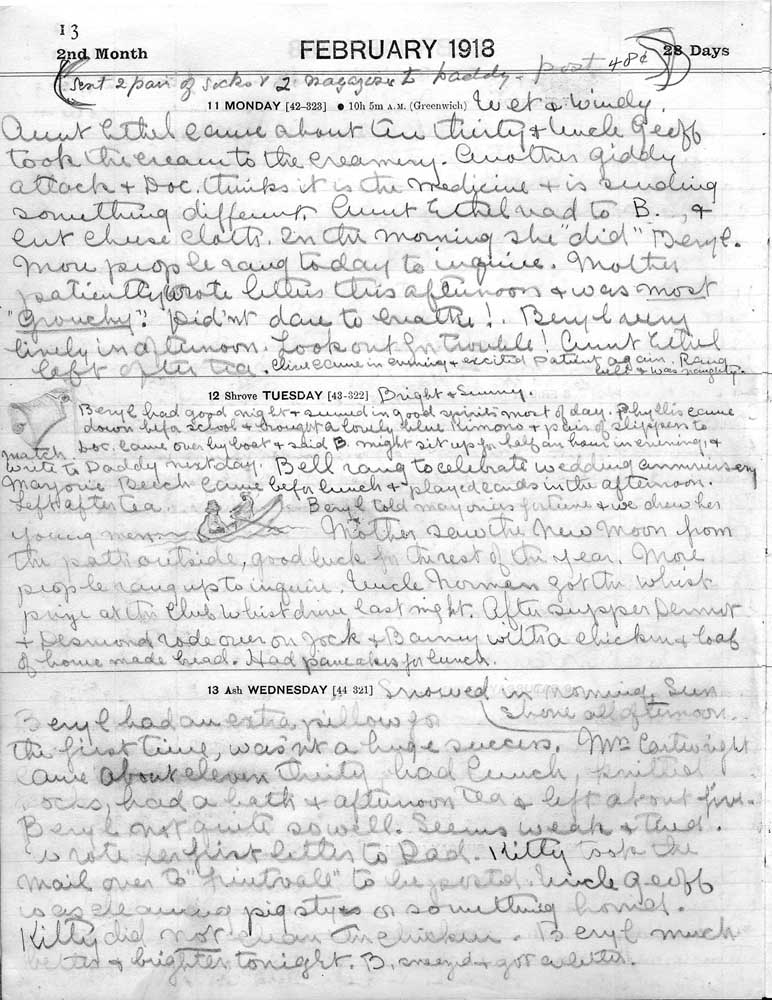 13
2nd Month FEBRUARY 1918 28 Days
(Sent 2 pair of socks & 2 magazines to Daddy - post 48¢)
11 MONDAY [42-323] ● 10h 5m A.M. (Greenwich) Wet & windy.
Aunt Ethel came about ten thirty & Uncle Geoff
took the cream to the creamery. Another giddy
attack & Doc. thinks it is the medicine & is sending
something different. Aunt Ethel read to B., &
cut cheese cloth. In the morning she "did" Beryl.
More people rang today to inquire. Mother
patiently wrote letters this afternoon & was most
"grouchy"! Did'nt dare to breathe! Beryl very
lively in afternoon. Look out for trouble! Aunt Ethel
left after tea. Clive came in evening & excited patient again. Rang
bell & was naughty.
12 Shrove TUESDAY [43-322] Bright & Sunny.
Beryl had good night & seemed in good spirits most of day. Phyllis came
down befor school & brought a lovely blue kimono & pair of slippers to
match. Doc. came over by boat & said B. might sit up for half an hour in evening, &
write to Daddy next day. Bell rang to celebrate wedding anniversary
Marjorie Beech came befor lunch & played cards in the afternoon.
Left after tea. Beryl told marjories fortune & we drew her
young men. Mother saw the New Moon from
the path outside, good luck for the rest of the year. More
people rang up to inquire. Uncle Norman got the whist
prize at the Club Whist drive last night. After supper Dermot
& Desmond rode over on Jock & Barney with a chicken & loaf
of home made bread. Had pancakes for lunch.
13 Ash WEDNESDAY [44 321] Snowed in morning. Sun
shone all afternoon.
Beryl had an extra pillow for
the first time, wasn't a huge success. Mrs Cartwright
came about eleven thirty, had lunch, knitted
socks, had a bath & afternoon tea & left about five.
Beryl not quite so well. Seems weak & tired.
wrote her first letter to Dad. Kitty took the
mail over to " " to be posted. Uncle Geoff
was cleaning pig stys or something horrid.
Kitty did not clean the chicken. Beryl much
better & brighter tonight. B. sneezed & got a letter.